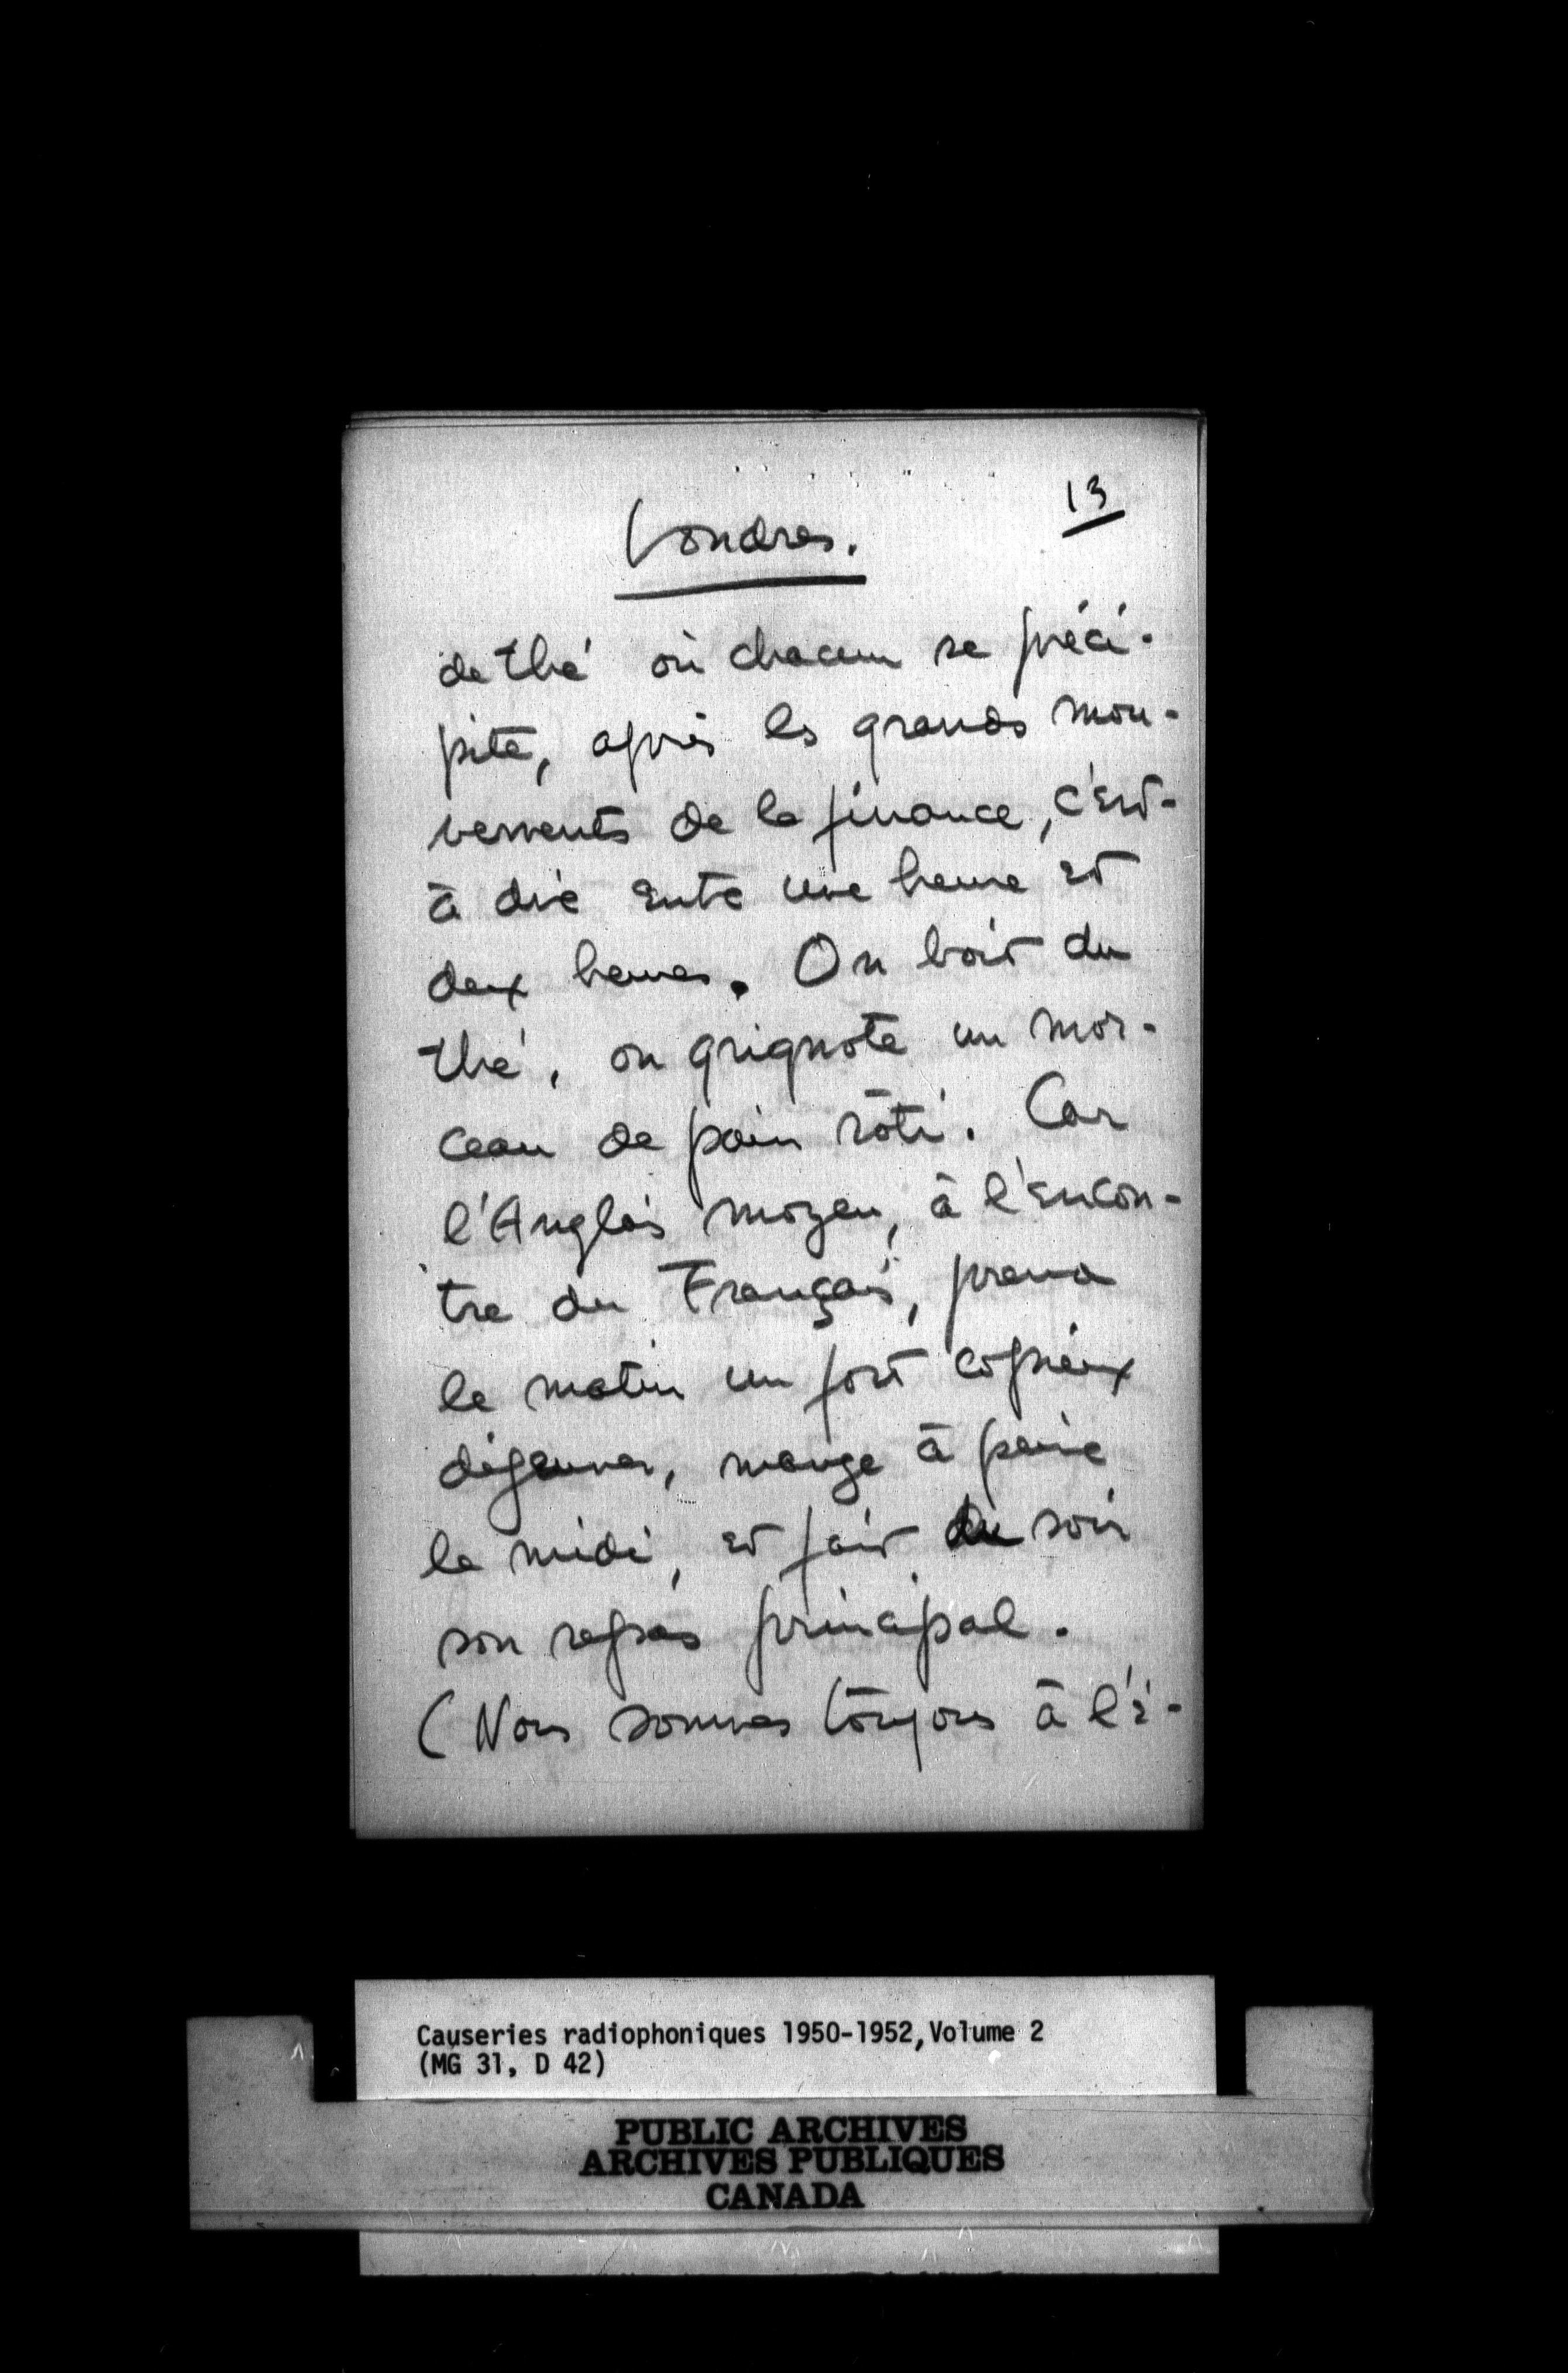 13
Londres.
de thé où chacun se préci-
pite, après les grands mou-
vements de la finance, c'est-
à dire entre une heure et
deux heures. On boit du
thé, on grignote un mor-
ceau de pain rôti. Car
l'Anglais moyen, à l'encon-
tre du Français, prend
le matin un fort copieux
déjeuner, mange à peine
le midi, et fait du soir
son repas principal.
(Nous sommes toujours à l'é-
Causeries radiophoniques 1950-1952, Volume 2
(MG 31, D 42)
PUBLIC ARCHIVES
ARCHIVES PUBLIQUES
CANADA